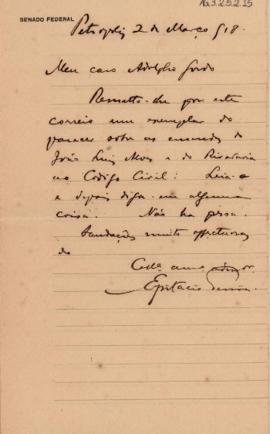 AG3.2.5.2.15
SENADO FEDERAL
Petropolis 2 de Março 918.
Meu caro Adolpho Gordo
Remetto-lhe por este
correio um exemplar do
parecer sobre as emendas de
João Luiz Alves e do
ao Codigo Civil: Leia-o
e depois diga-me alguma
coisa. Não ha pressa.
Saudações muito affectuosas
do
Colla. amo
Epitacio Pessoa